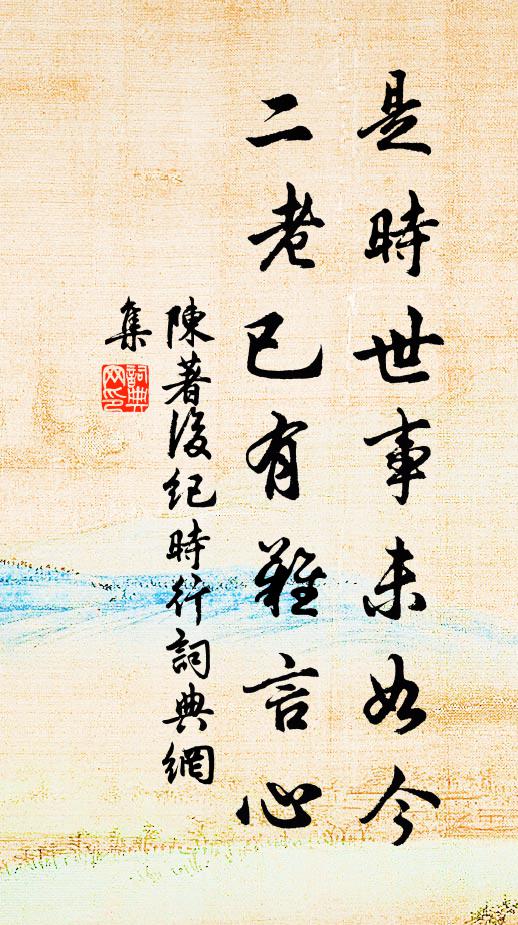 是時世事未如今
二老已有難言心
陳著後紀時行詞典網
集
詞典網印